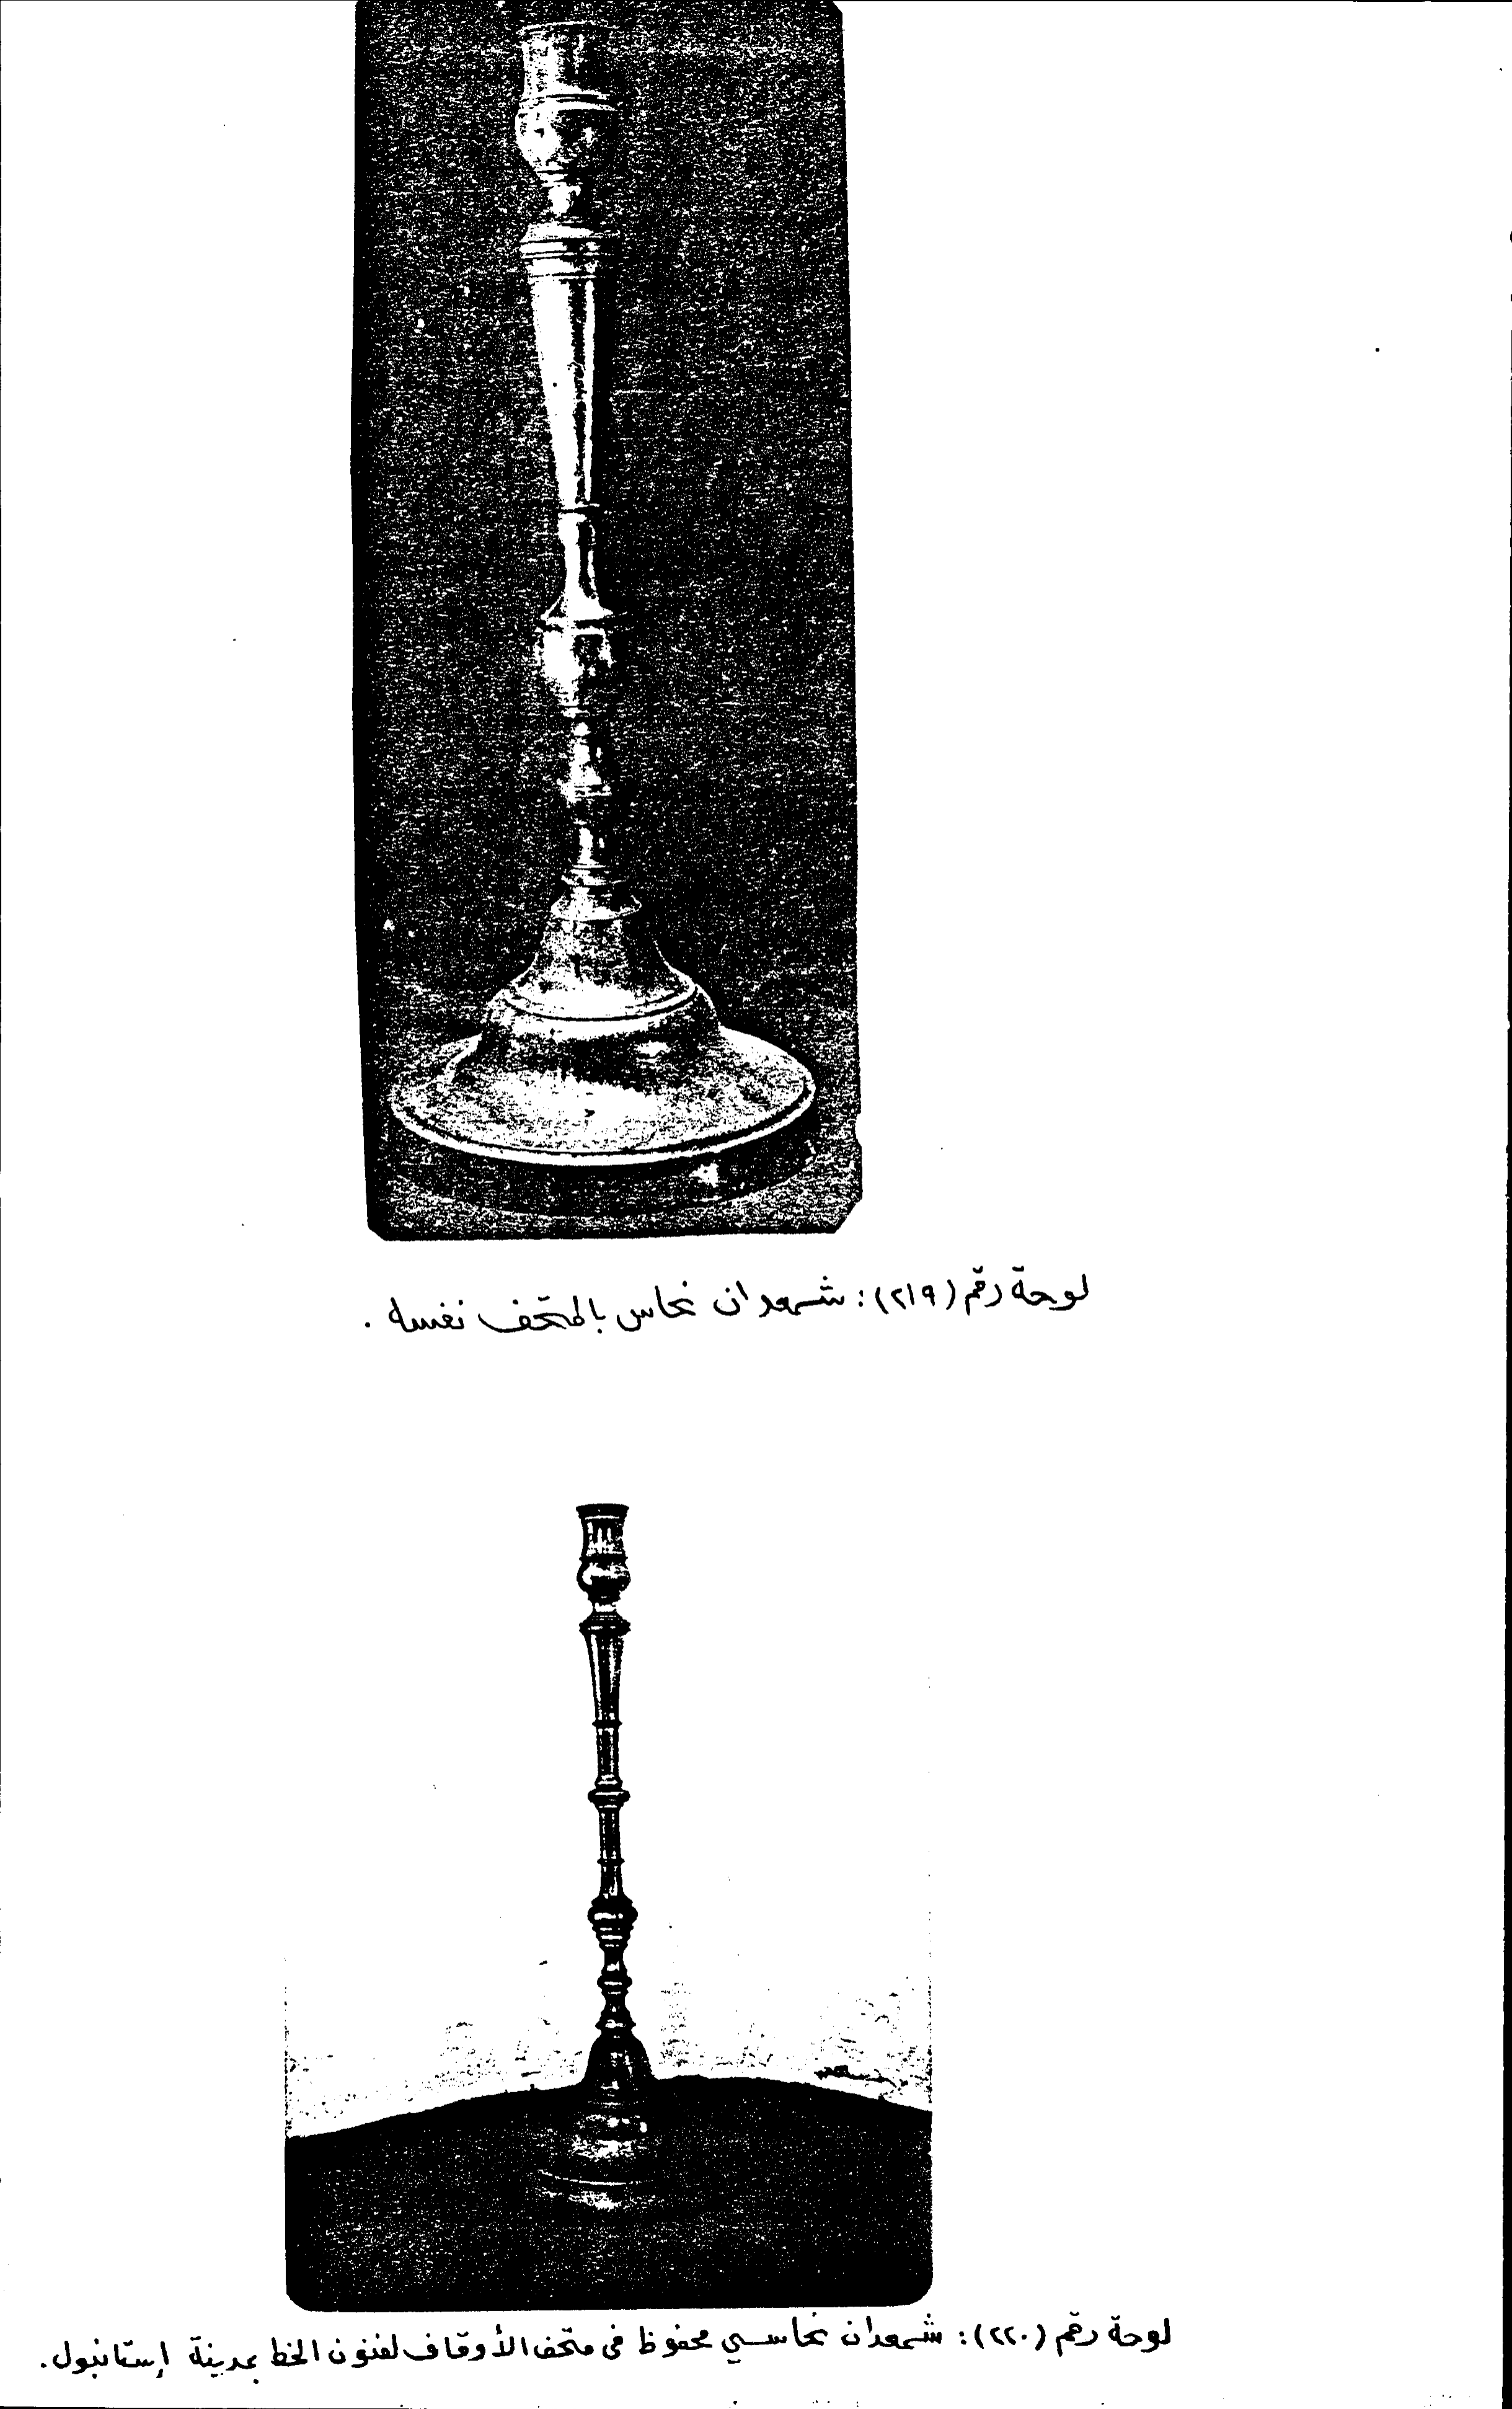 لوحة رقم (٢١٩): شمعدان نحاس بالمتحف نفسه .
لوحة رقم (٢٢٠): شمعدان نحاسي محفوظ في متحف الأوقاف لفنون الخط بمدينة إستانبول.